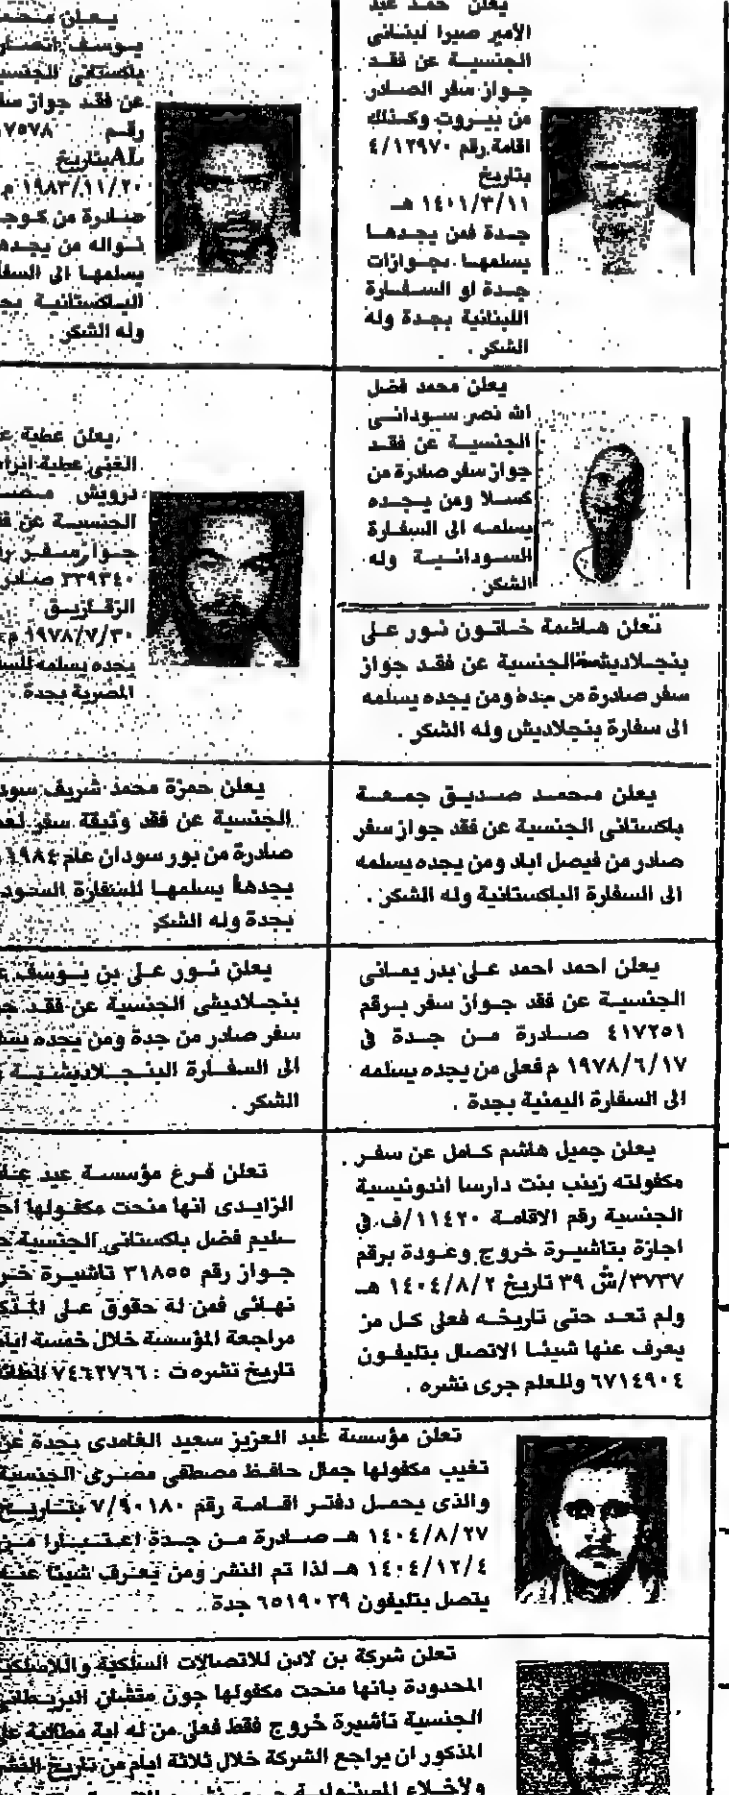 يعلن حمد عبد
الأمير صبرا لبنانى
الجنسيـة عن فقـد
جـواز سفر الصـادر
من بيـروت وكـذلك
اقامة رقم ٤/١٢٩٧٠
بتاريخ
١٤٠١/٣/١١ هـ
جـدة فمن يجـدهـا
يسلمهـا بجـوازات
جـدة او السـفـارة
اللبنانية بجـدة ولـه
الشكر .
يعلن محمد فضل
الله نصر سـودانـى
الجنسيـة عن فقـد
جواز سفر صادرة من
كسـلا ومن يـجـده
يسلمـه الى السفـارة
السـودانـيـة ولـه
الشكر .
تعلن هـاشمة خـاتـون نـور عـلى
بنجـلاديشية الجنسية عن فقـد جواز
سفر صادرة من جدة ومن يجده يسلمه
الى سفارة بنجلاديش وله الشكر .
يعلن مـحمـد صـديـق جمـعـة
باكستانى الجنسية عن فقد جواز سفر
صادر من فيصل اباد ومن يجده يسلمه
الى السفارة الباكستانية وله الشكر .
يعلن احمد احمد عـلى بدر يمـانى
الجنسيـة عن فقد جـواز سفر بـرقم
٤١٧٢٥١ صـادرة مـن جـدة فى
١٩٧٨/٦/١٧ م فعلى من يجده يسلمه
الى السفارة اليمنية بجدة .
يعلن جميل هاشم كـامل عن سفـر
مكفولته زينب بنت دارسا اندونيسية
الجنسية رقم الاقامـة ١١٤٢٠/ف فى
اجازة بتاشيـرة خروج وعـودة برقم
٣٧٣٧/ش ٣٩ تاريخ ١٤٠٤/٨/٢ هـ
ولم تعـد حتى تاريخـه فعلى كـل من
يعرف عنها شيئـا الاتصال بتليفـون
٦٧١٤٩٠٤ وللعلم جرى نشره .
يـعـلن
يـوسـف
باكستانى الجنسيـ
عن فقد جواز سفـ
رقـم ٧٥٧٨
بتاريخ
١٩٨٣/١١/٢٠ م
صـادرة من
نـواله من يجـدهـ
يسلمهـا الى السفـ
البـاكستانيـة بجـ
وله الشكر .
يعلن عطية عـ
الغنى عطية ابراهـ
درويش مـصـ
الجنسيـة عن فقـ
جـواز سـفـر رقـ
٣٣٩٣٤٠ صـادر
الزقـازيـق
١٩٧٨/٧/٣٠ م
يجده يسلمه للسفـ
المصرية بجدة .
يعلن حمزة محمد شريف سود
الجنسية عن فقد وثيقة سفر
صادرة من بور سودان عام ١٩٨٤
يجدهـا يسلمهـا للسفارة السـود
بجدة وله الشكر
يعلن نـور عـلى بن يـوسف
بنجـلاديشى الجنسية عن فقـد جـ
سفر صادر من جدة ومن يجده يسلـ
الى السفـارة البنـجـلاديشـيـة
الشكر .
تعلن فـرع مؤسسـة عيد
الزايـدى انها منحت مكفـولها
سليم فضل باكستانى الجنسية
جـواز رقم ٣١٨٥٥ تاشيـرة خـر
نهـائى فمن له حقوق عـلى المـذك
مراجعة المؤسسة خلال خمسة ايا
تاريخ نشره ت : ٧٤٦٢٧٦٦ الطائ
تعلن مؤسسة عبد العزيز سعيد الغامدى بجدة عن
تغيب مكفولها جمال حافظ مصطفى مصـرى الجنسية
والذى يحمـل دفتـر اقـامـة رقم ٧/٩٠١٨٠ بتـاريـخ
١٤٠٤/٨/٢٧ هـ صـادرة مـن جـدة اعـتـبـارا مـن
١٤٠٤/١٢/٤ هـ لذا تم النشر ومن يعـرف شيئا عنـه
يتصل بتليفون ٦٥١٩٠٣٩ جدة
تعلن شركة بن لادن للاتصالات السلكية واللاسلكية
المحدودة بانها منحت مكفولها جون البريـطانى
الجنسية تأشيرة خروج فقط فعلى من له اية مطالبة على
المذكور ان يراجع الشركة خلال ثلاثة ايام من تاريخ النشر
ولأخـلاء المسئوليـة جـرى